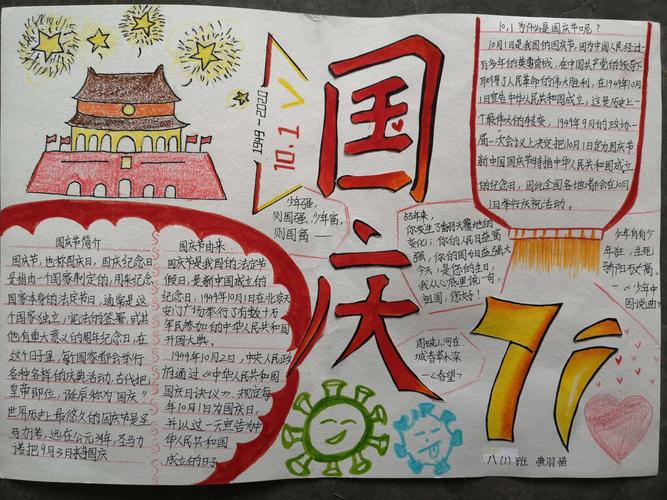 1949-2020
10.1
国庆
10.1为什么是国庆节呢?
10月1日是我国的国庆节,因为中国人民经过一
百多年的英勇奋战,在中国共产党的领导下
取得了人民革命的伟大胜利,在1949年10月
1日宣告中华人民共和国成立,这是历史上一
个最伟大的转变,1949年9月的政协一
届一次会议上决定把10月1日定为国庆节
新中国国庆节特指中华人民共和国成立
的纪念日,因此全国各地都会在10月
1日举行庆祝活动。
少年强,
则国强,少年富,
则国富——
国庆节简介
国庆节,也称国庆日,国庆纪念日
是指由一个国家制定的,用来纪念
国家本身的法定节日,通常是这
个国家独立,宪法的签署,或其
他有重大意义的周年纪念日,
在这个日子里,每个国家都会举行
各种各样的庆典活动,古代把
皇帝即位,诞辰称为"国庆"
世界历史上最悠久的国庆节是圣
马力诺,远在公元301年,圣马力
诺把9月3日来国庆
国庆节由来
国庆节是我国的法定节
假日,是新中国成立的
纪念日,1949年10月1日在北京天
安门广场举行了有数十万
军民参加的中华人民共和国
开国大典。
1949年10月2日,中央人民政
府通过《中华人民共和国
国庆日决议》,规定每
年10月1日为国庆日,
并以这一天宣告中
华人民共和国
成立的日子
你发生了翻天覆地的
变化,你的人民日益富
强,你的国力日益强大
今天,是您的生日,
我从心底里说一句,
祖国,您好!
国破山河在
城春草木深
—《春望》
少年自有少
年狂,
—《少年中
国说曲》
71
八(1)班